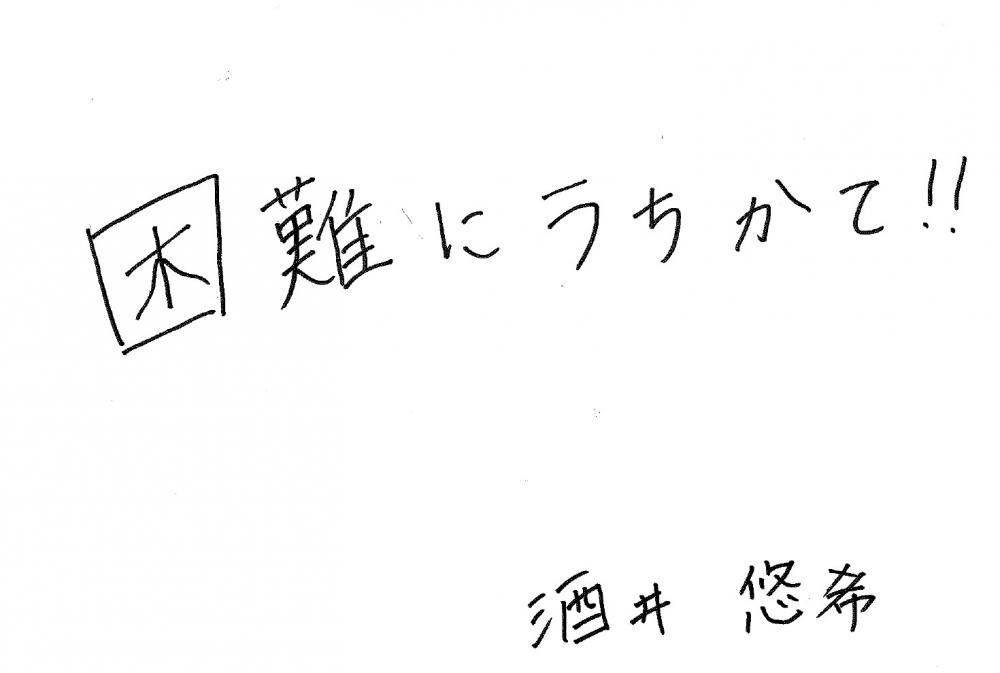 困難にうちかて!!
酒井 悠希